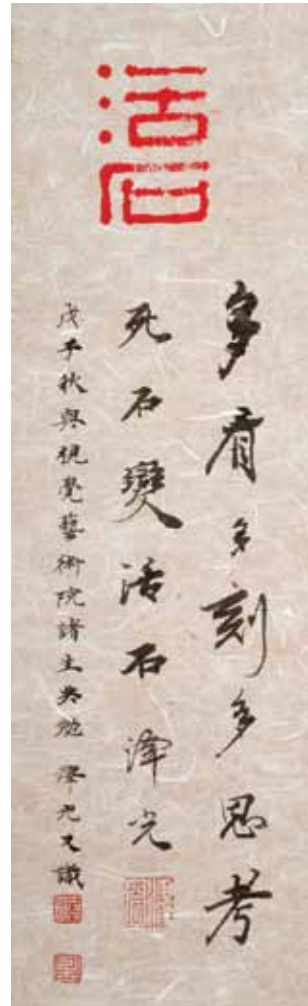 活石
多看多刻多思考
死石變活石澤光
戊子秋與視覺藝術院諸生共勉 澤光又識